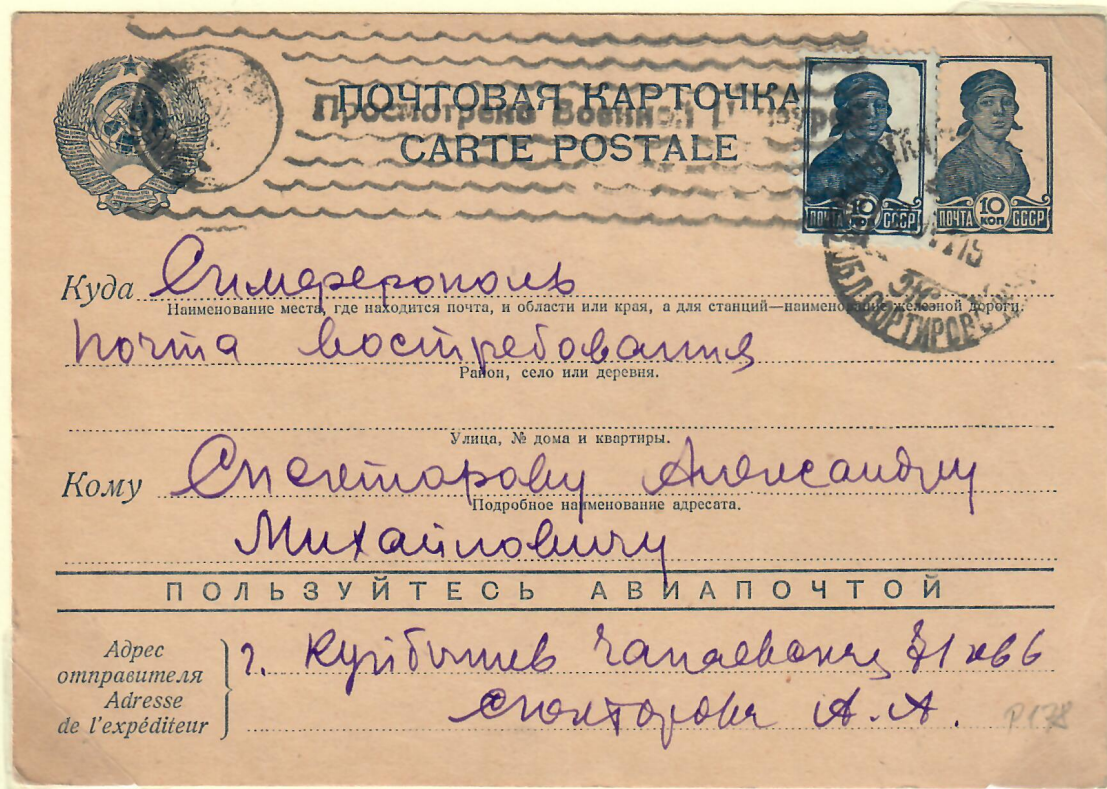 ПОЧТОВАЯ КАРТОЧКА
Просмотрено Военной
CARTE POSTALE
ПОЧТА 10 КОП СССР
ПОЧТА 10 КОП СССР
Куда Симферополь
Наименование места, где находится почта, и области или края, а для станций—наименование железной дороги.
почта востребования
Район, село или деревня.
Улица, № дома и квартиры.
Кому Спекторову Александру
Подробное наименование адресата.
Михайловичу
ПОЛЬЗУЙТЕСЬ АВИАПОЧТОЙ
Адрес
отправителя
Adresse
de l'expéditeur
г. Куйбышев Чапаевская 71 кв 6
Спекторова А. А.
P178